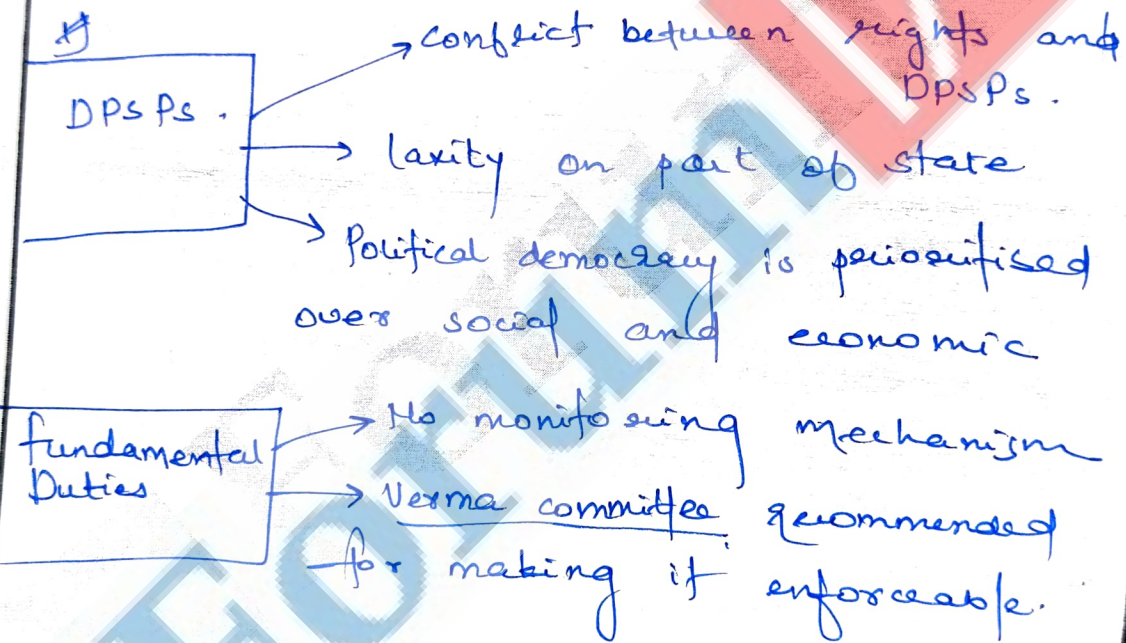 DPSPs.
conflict between rights and
DPSPs.
laxity on part of state
Political democracy is prioritised
over social and economic
fundamental
Duties
No monitoring mechanism
Verma committee recommended
for making it enforceable.
Forum